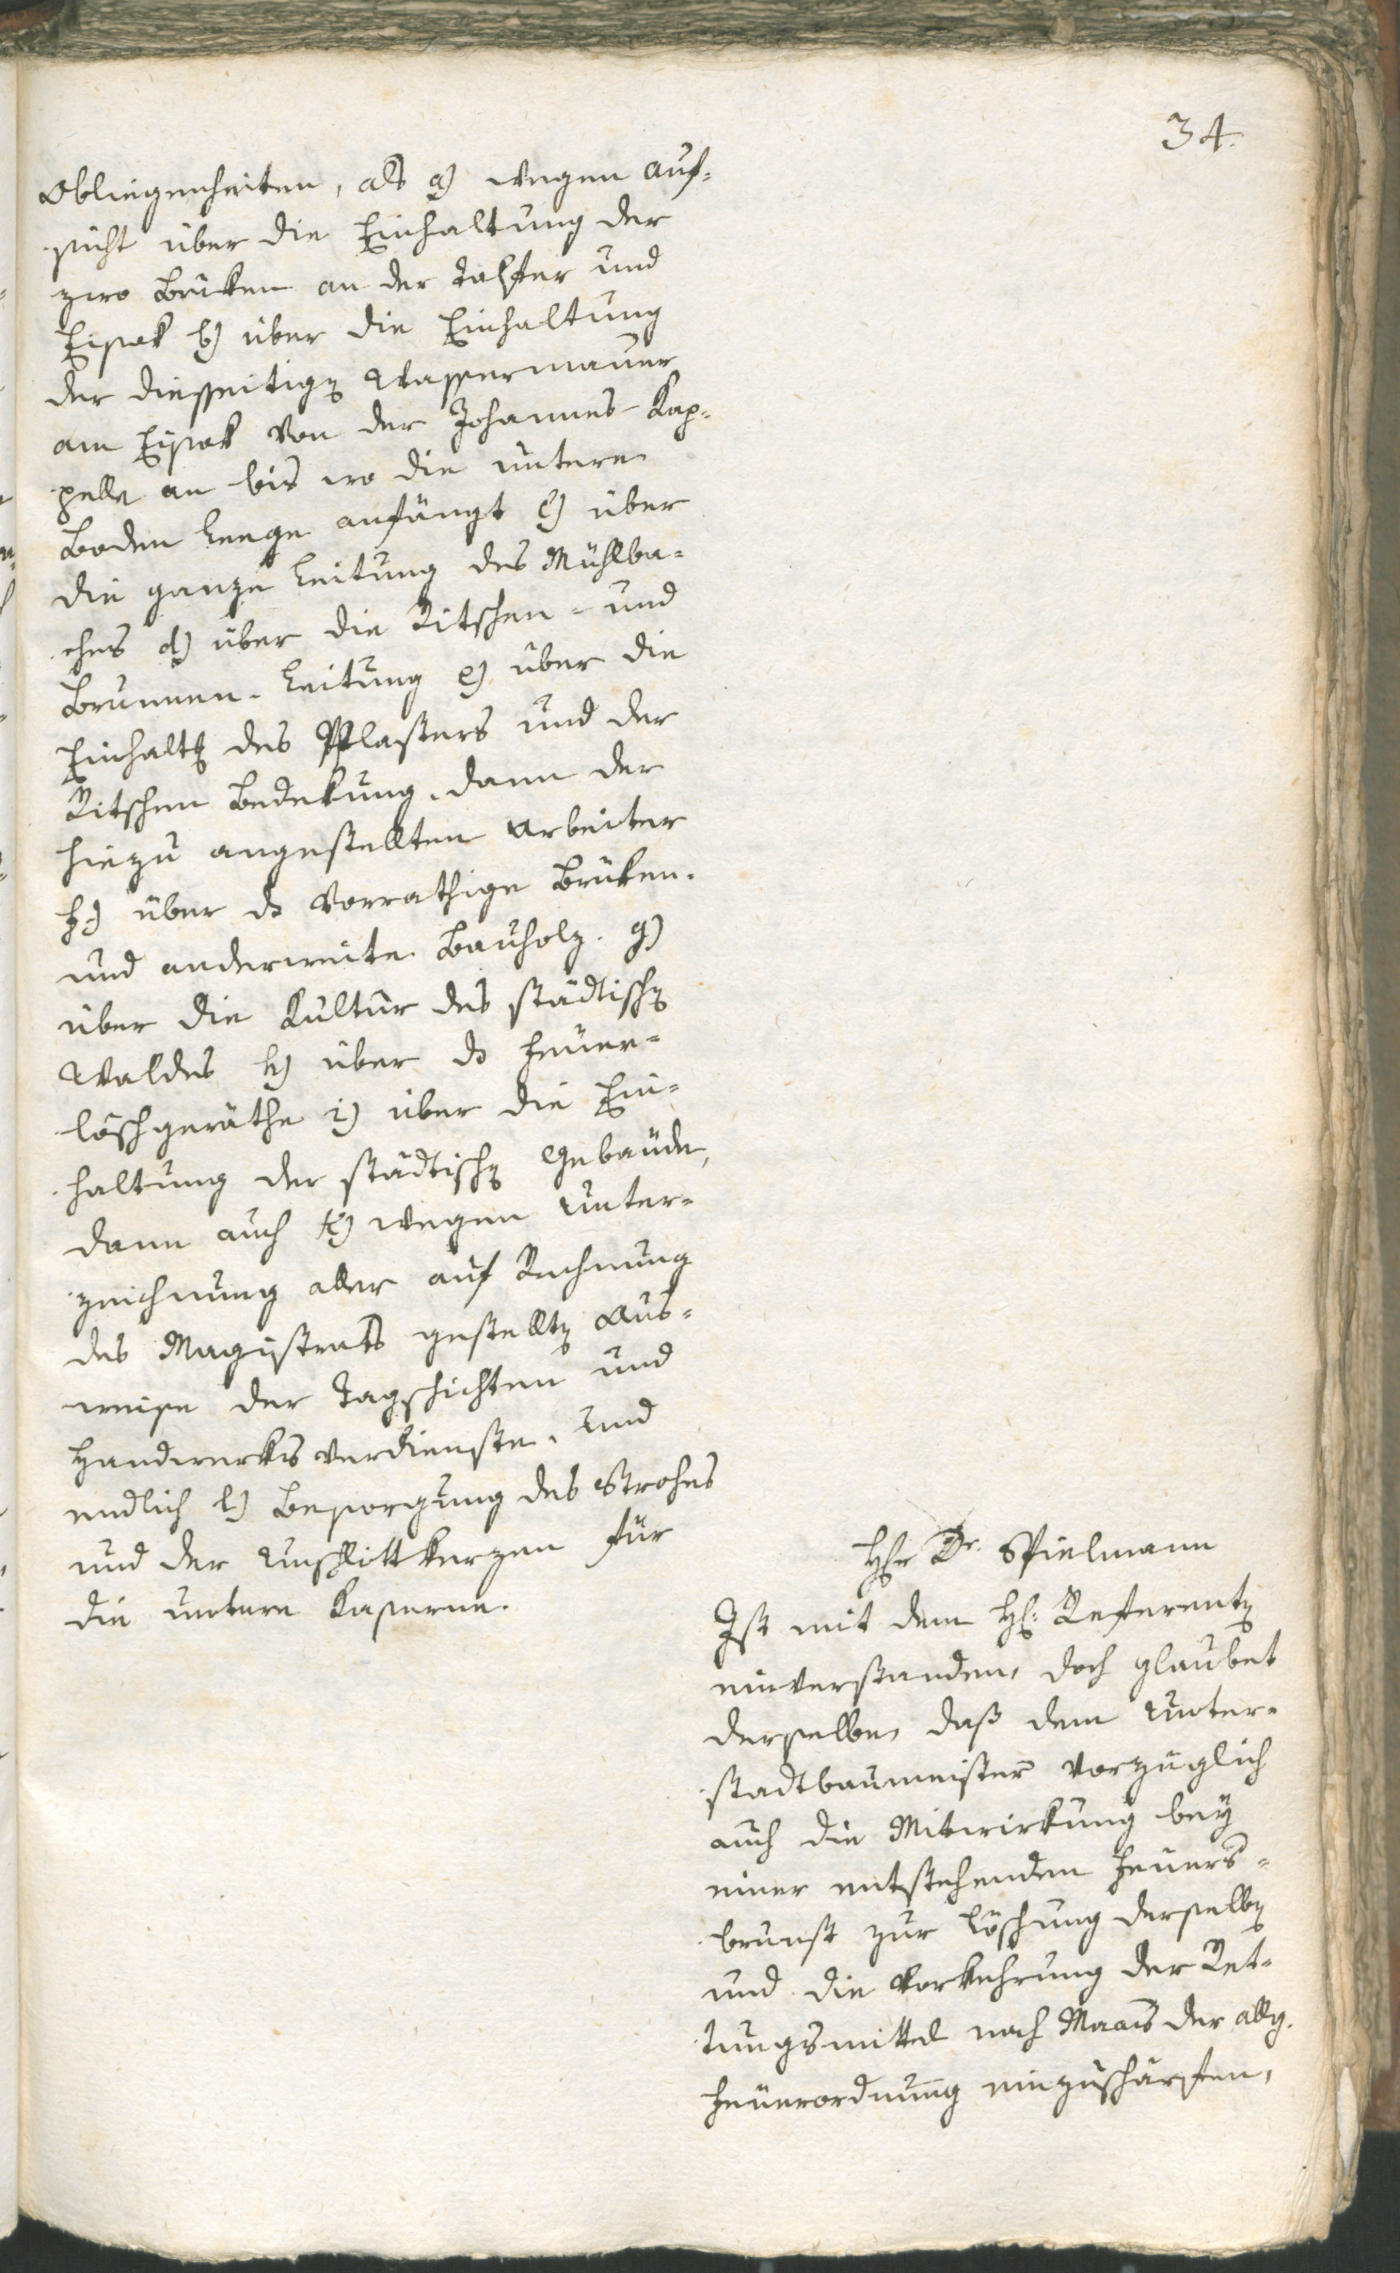 34.
Obliegenheiten, als a) wegen Auf-
sicht über die Einhaltung der
zwo Brüken an der Talfer und
Eisak b) über die Einhaltung
der diesseitigen Wassermauer
am Eisak von der Johannes-Kap-
pelle an bis wo die untere
Boden Leege anfängt c) über
die ganze Leitung des Mühlba-
ches d) über die Ritschen- und
Brunnen-Leitung e) über die
Einhaltung des Pflasters und der
Ritschen Bedekung, dann der
hiezu angestellten Arbeiter
f) über das vorrathige Brüken-
und anderweite Bauholz. g)
über die Kultur des städtischen
Waldes h) über das Feuer-
löschgeräthe i) über die Ein-
haltung der städtischen Gebäude,
dann auch k) wegen Unter-
zeichnung aller auf Rechnung
des Magistrats gestellten Aus-
weise der Tagschichten und
Handwerksverdienste, und
endlich l) Besorgung des Strohes
und der Unschlittkerzen für
die untere Kaserne.
Hr Dr. Spielmann
Ist mit dem H. Referenten
einverstanden, doch glaubet
derselbe, daß dem Unter-
stadtbaumeister vorzüglich
auch die Mitwirkung bey
einer entstehenden Feuers-
brunst zur Löschung derselben
und die Vorkehrung der Ret-
tungsmittel nach Maas der allg.
Feuerordnung einzuschärfen,